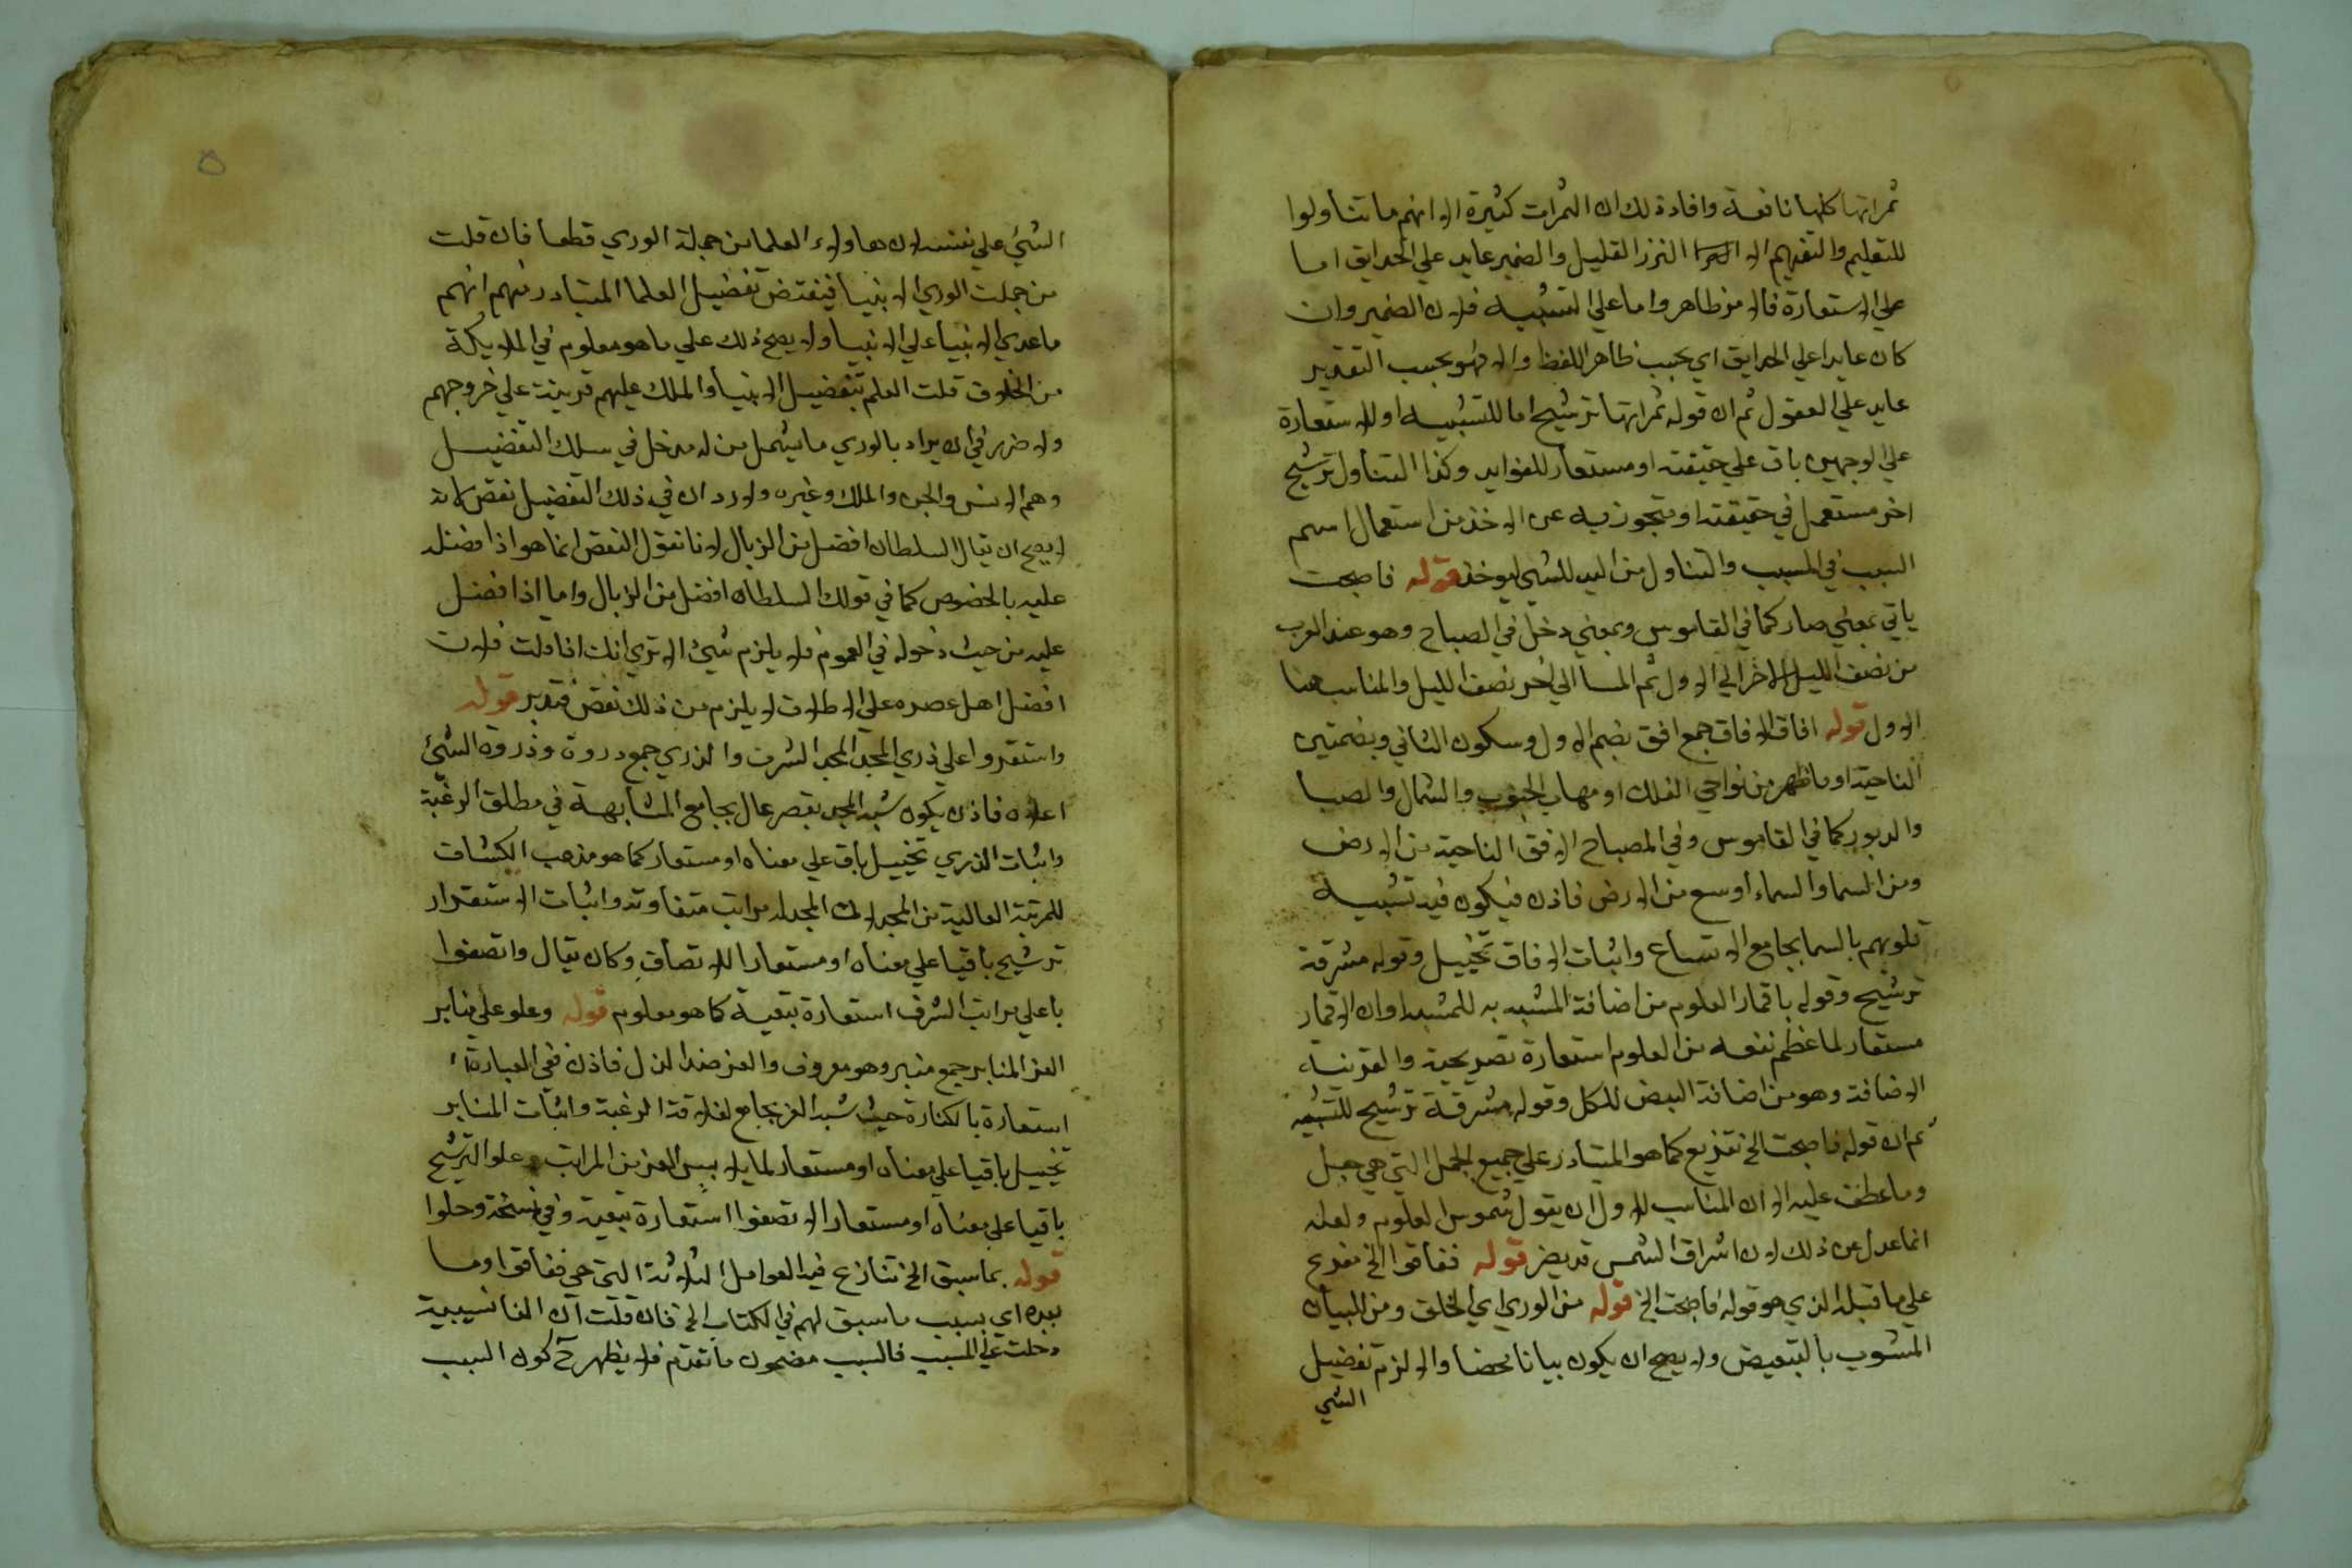 ثمراتها كلها نافعة وافاد ذلك ان الثمرات كثيرة الا انهم ما تناولوا
للتعليم والتفهيم الا النزر القليل والضمير عايد علي الحدايق اما
علي الاستعارة فالامر ظاهر واما علي التشبيه فلان الضمير وان
كان عايدا علي الحدايق اي بحسب ظاهر اللفظ والا فهو بحسب التقدير
عايد علي العقول ثم ان قوله ثمراتها ترشيح اما للتشبيه او للاستعارة
علي الوجهين باق علي حقيقته او مستعار للفوايد وكذا التناول ترشيح
اخر مستعمل في حقيقته او متجوز فيه عن الاخذ من استعمال اسم
السبب في المسبب والتناول من اليد للشي ليوخذ قوله فاصبحت
ياتي بمعني صار كما في القاموس وبمعني دخل في الصباح وهو عند العرب
من نصف الليل الاخر الي الاول ثم المسا الي اخر نصف الليل والمناسب هنا
الاول قوله افاق الافاق جمع افق بضم الاول وسكون الثاني وبضمتين
الناحية او ما ظهر من نواحي الفلك او مهاب الجنوب والشمال والصبا
والدبور كما في القاموس وفي المصباح الافق الناحية من الارض
ومن السما والسماء اوسع من الارض فاذن فيكون فيه تشبيه
قلوبهم بالسما بجامع الاتساع واثبات الافاق تخييل وقوله مشرقة
ترشيح وقوله باقمار العلوم من اضافة المشبه به للمشبه او ان الاقمار
مستعار لما عظم نفعه من العلوم استعارة تصريحية والقرينة
الاضافة وهو من اضافة البعض للكل وقوله مشرقة ترشيح للتشبيه
ثم ان قوله فاصبحت الخ تفريع كما هو المتبادر علي جميع الجمل التي هي جعل
وما عطف عليه الا ان المناسب للاول ان يقول شموس العلوم ولعله
انما عدل عن ذلك لان اشراق الشمس قد يضر قوله ففاقوا الخ مفرع
علي ما قبله الذي هو قوله فاصبحت الخ قوله من الوري اي الخلق ومن للبيان
المشوب بالتبعيض ولا يصح ان يكون بيانا محضا والا لزم تفضيل
الشي
الشيء علي نفسه لان هاولاء العلما من جملة الوري قطعا فان قلت
من جملت الوري الانبيا فيقتض تفضيل العلما المتبادر منهم انهم
ما عدي الانبيا علي الانبيا ولا يصح ذلك علي ما هو معلوم في الملايكة
من الخلاف قلت العلم بتفضيل الانبيا والملك عليهم قرينة علي خروجهم
ولا ضرر في ان يراد بالوري ما يشمل من له مدخل في سلك التفضيل
وهم الانس والجن والملك وغيره ولا يرد ان في ذلك التفضيل نقص لانه
لا يصح ان يقال السلطان افضل من الزبال لانا نقول النقص انما هو اذا فضله
عليه بالخصوص كما في قولك السلطان افضل من الزبال واما اذا فضل
عليه من حيث دخوله في العموم فلا يلزم شيء الا تري انك اذا قلت فلان
افضل اهل عصره علي الاطلاق لا يلزم من ذلك نقص فتدبر قوله
واستقروا علي ذري المجد المجد الشرف والذري جمع دروة وذروة الشيء
اعلاه فاذن يكون شبه المجد بقصر عال بجامع المشابهة في مطلق الرغبة
واثبات الذري تخييل باق علي معناه او مستعار كما هو مذهب الكشاف
للمرتبة العالية من المجد لان المجد له مراتب متفاوتة واثبات الاستقرار
ترشيح باقيا علي معناه او مستعارا للاتصاف وكان يقال واتصفوا
باعلي مراتب الشرف استعارة تبعية كما هو معلوم قوله وعلو علي منابر
العز المنابر جمع منبر وهو معروف والعز ضد الذل فاذن ففي العبارة
استعارة بالكناية حيث شبه العز بجامع لعلاقة الرغبة واثبات المنابر
تخييل باقيا علي معناه او مستعار لما يلايم العز من المراتب وعلو الترشيح
باقيا علي معناه او مستعارا لاتصفوا استعارة تبعية وفي نسخة وحلوا
قوله بما سبق الخ تنازع فيه العوامل الثلاثة التي هي ففاقوا وما
بعده اي بسبب ما سبق لهم في الكتاب الخ فان قلت ان الفا سببية
دخلت علي المسبب فالسبب مضمون ما تقدم فلا يظهر ح كون السبب